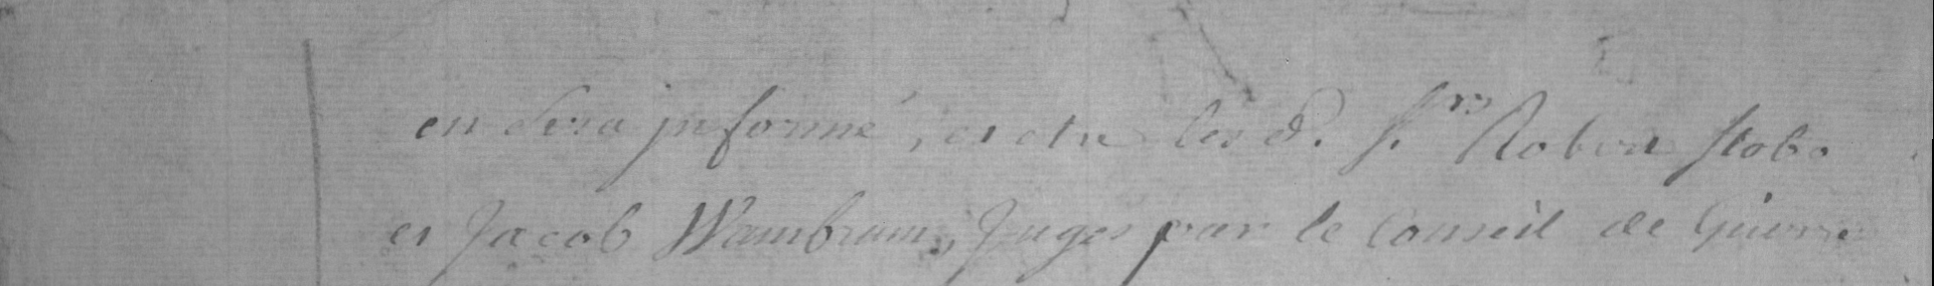 en Sera jnformé, et etre les d. Srs Robert Stobo
et Jacob Wambram, Juges par le Conseil de Guerre